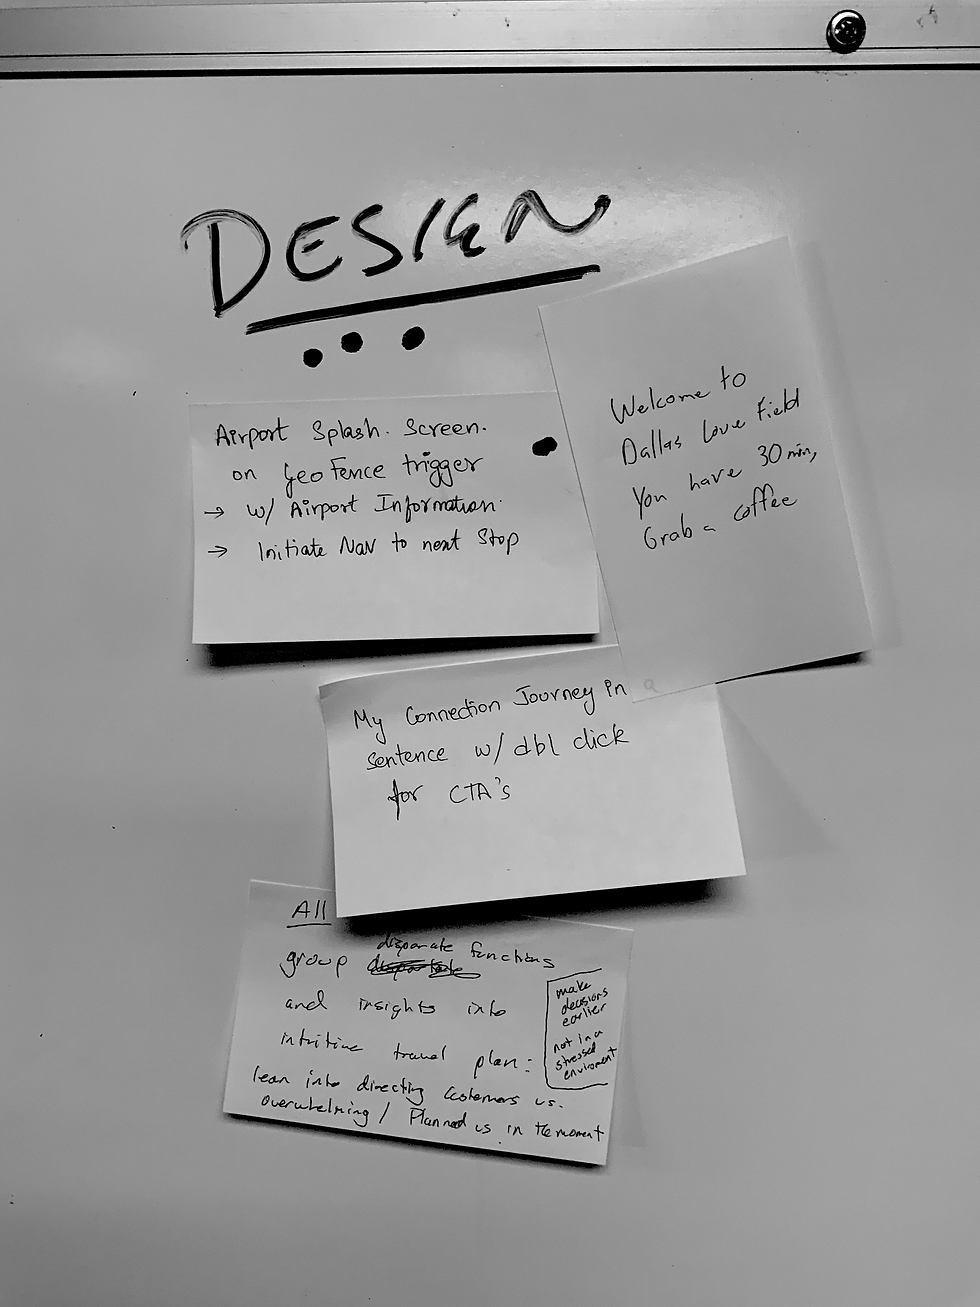 DESIGN
Airport Splash. Screen.
on GeoFence trigger
→ w/ Airport Information.
→ Initiate Nav to next Stop
Welcome to
Dallas Love Field
You have 30 min,
Grab a coffee
My Connection Journey in a
sentence w/ dbl click
for CTA's
All
group disparate functions
and insights into
intuitive travel plan:
lean into directing customers vs.
overwhelming / Planned vs in the moment
make
decisions
earlier
not in a
stressed
enviroment